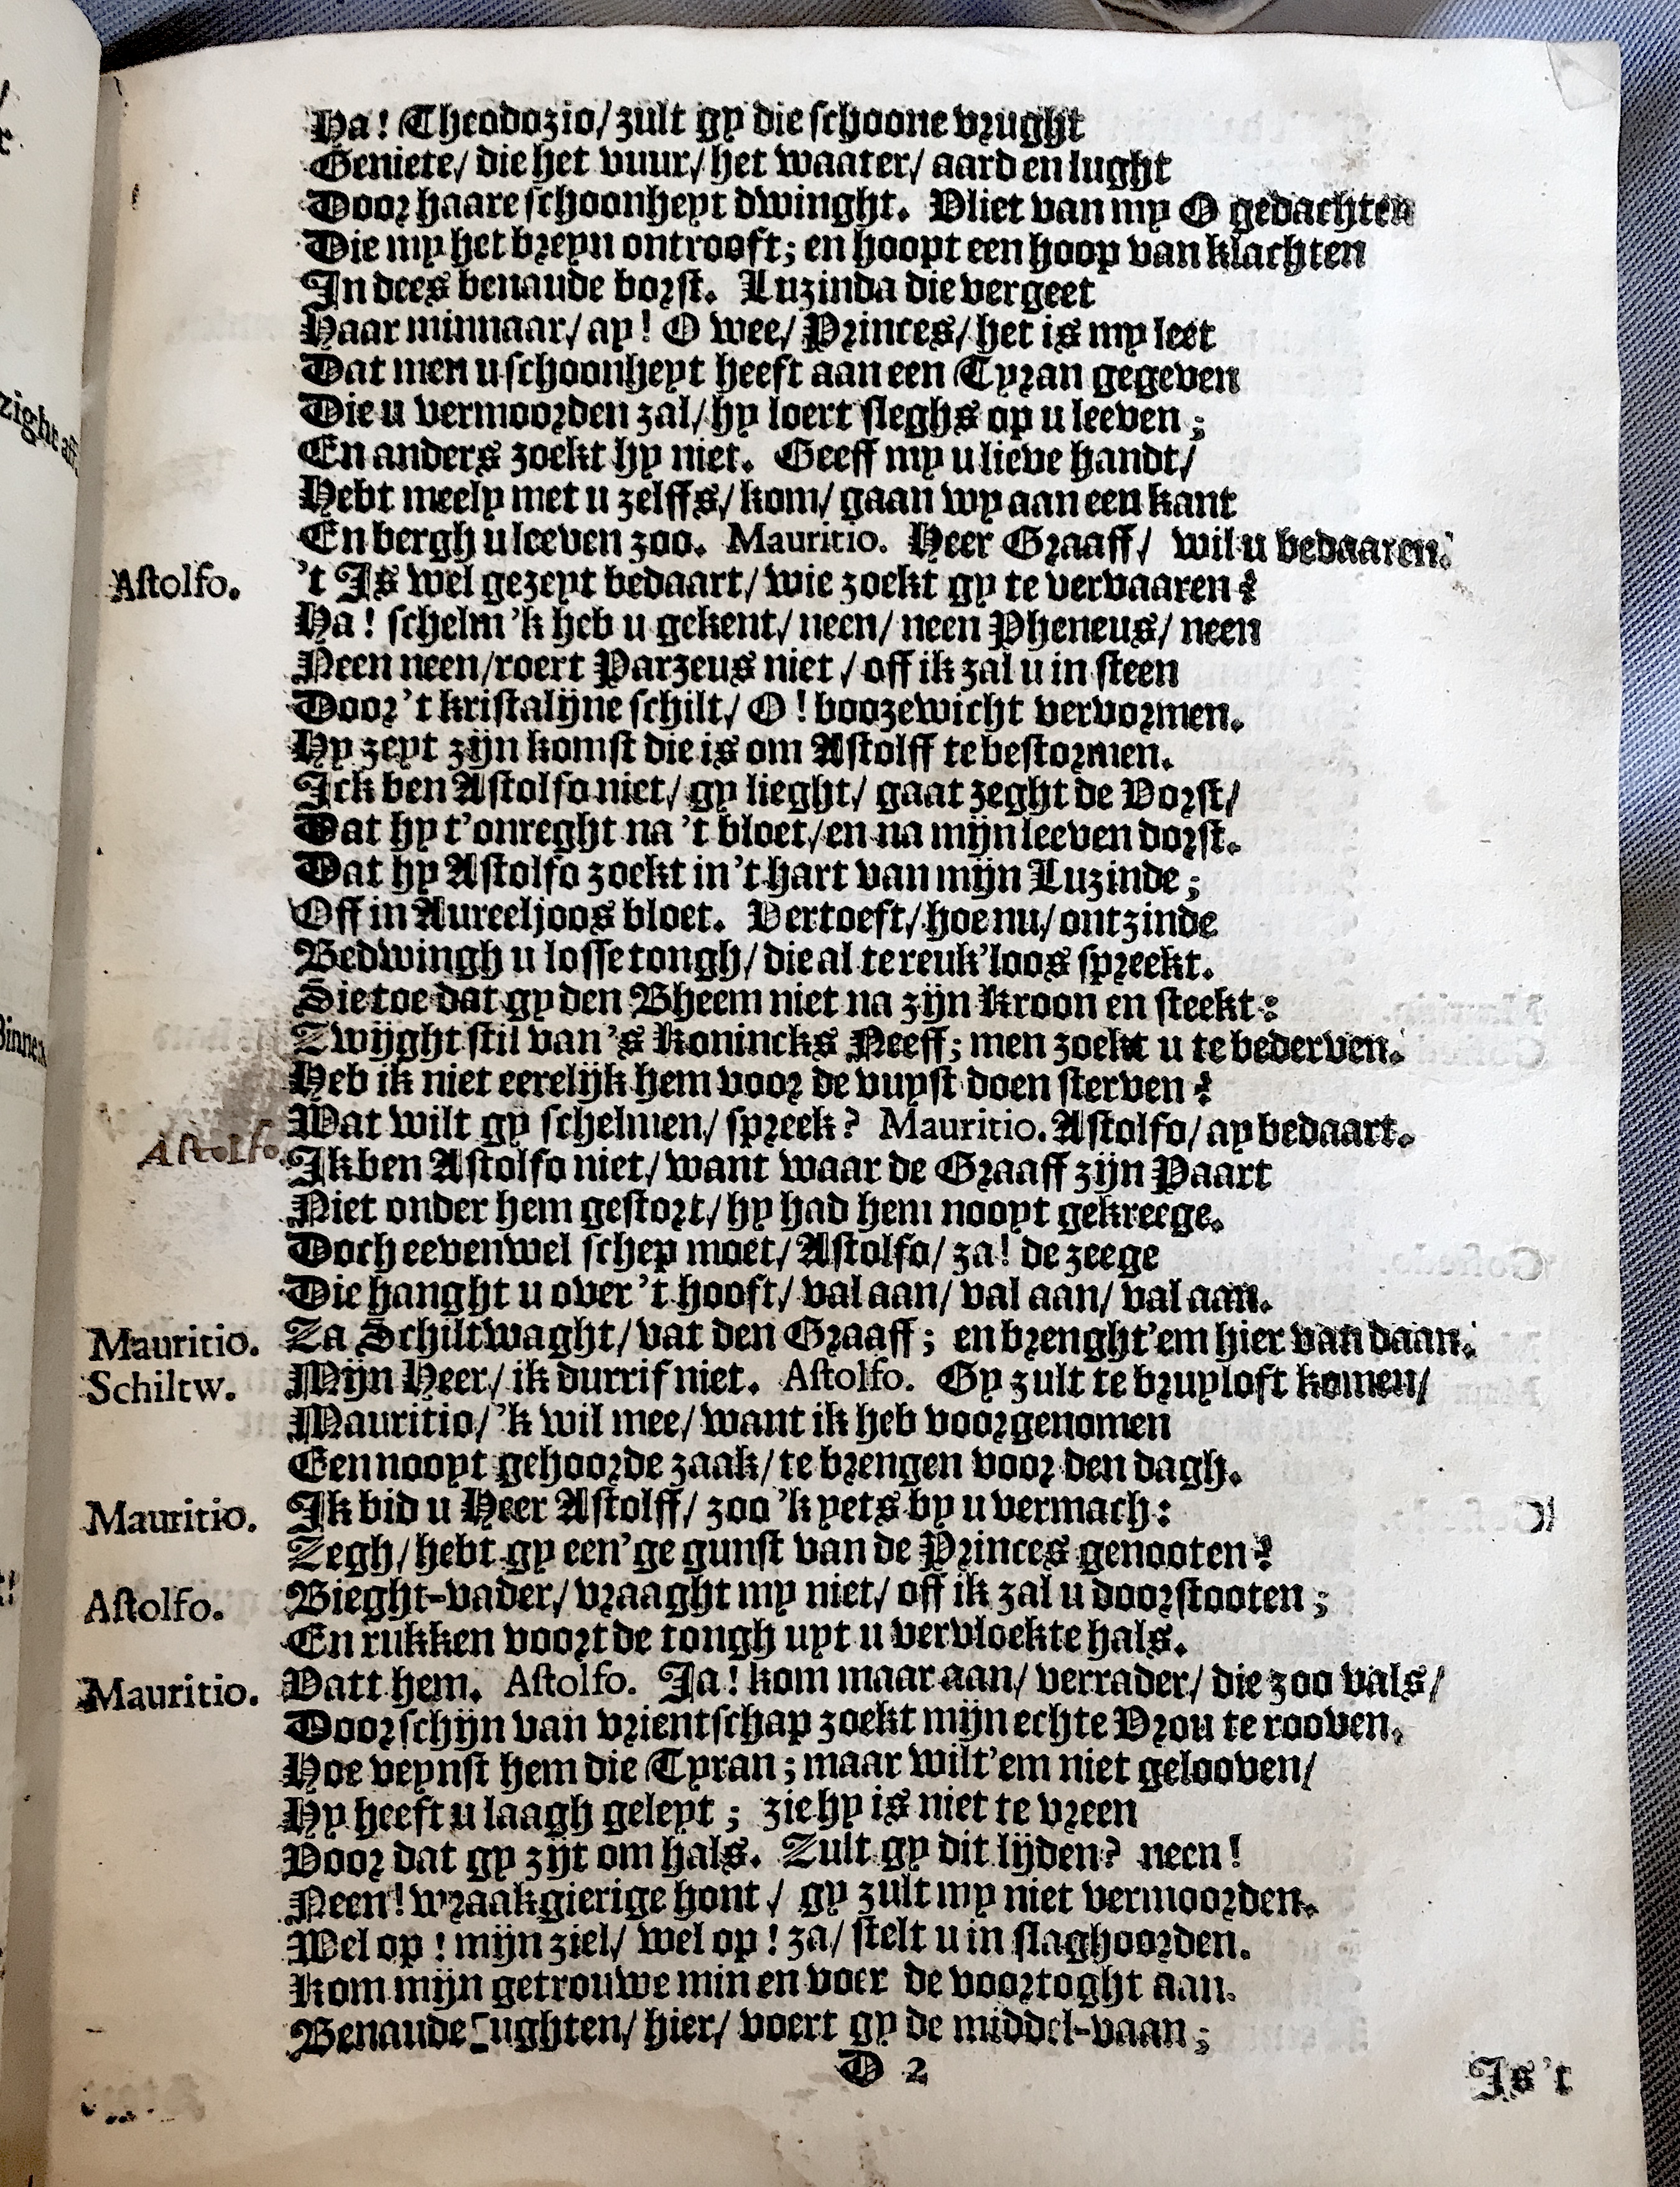 Ha! Theodozio/ zult gy die schoone vrught
Geniete/ die het vuur/ het waater/ aard en lught
Door haare schoonheyt dwinght. Vliet van my O gedachten
Die my het breyn ontrooft; en hoopt een hoop van klachten
In dees benaude borst. Luzinda die vergeet
Haar minnaar/ ay! O wee/ Princes/ het is my leet
Dat men u schoonheyt heeft aan een Tyran gegeven
Die u vermoorden zal/ hy loert sleghs op u leeven;
En anders zoekt hy niet. Geeff my u lieve handt/
Hebt meely met u zelffs/ kom/ gaan wy aan een kant
En bergh u leeven zoo. Mauritio. Heer Graaff/ wil u bedaaren.
Astolfo. 't Is wel gezeyt bedaart/ wie zoekt gy te vervaaren?
Ha! schelm 'k heb u gekent/ neen/ neen Pheneus/ neen
Neen neen/ roert Parzeus niet/ off ik zal u in steen
Door 't kristalijne schilt/ O! boozewicht vervormen.
Hy zeyt zijn komst die is om Astolff te bestormen.
Ick ben Astolfo niet/ gy lieght/ gaat zeght de Vorst/
Dat hy t'onreght na 't bloet/ en na mijn leeven dorst.
Dat hy Astolfo zoekt in 't hart van mijn Luzinde;
Off in Aureeljoos bloet. Vertoeft/ hoe nu/ ontzinde
Bedwingh u losse tongh/ die al te reuk'loos spreekt.
Sie toe dat gy den Bheem niet na zijn Kroon en steekt:
Zwijght stil van 's Konincks Neeff; men zoekt u te bederven.
Heb ik niet eerelijk hem voor de vuyst doen sterven?
Wat wilt gy schelmen/ spreek? Mauritio. Astolfo/ ay bedaart.
Astolfo. Ik ben Astolfo niet/ want waar de Graaff zijn Paart
Niet onder hem gestort/ hy had hem nooyt gekreege.
Doch eevenwel schep moet/ Astolfo/ za! de zeege
Die hanght u over 't hooft/ val aan/ val aan/ val aan.
Mauritio. Za Schiltwaght/ vat den Graaff; en brenght'em hier van daan.
Schiltw. Mijn Heer/ ik durrif niet. Astolfo. Gy zult te bruyloft komen/
Mauritio/ 'k wil mee/ want ik heb voorgenomen
Een nooyt gehoorde zaak/ te brengen voor den dagh.
Mauritio. Ik bid u Heer Astolff/ zoo 'k yets by u vermach:
Zegh/ hebt gy een'ge gunst van de Princes genooten?
Astolfo. Bieght-vader/ vraaght my niet/ off ik zal u doorstooten;
En rukken voort de tongh uyt u vervloekte hals.
Mauritio. Vatt hem. Astolfo. Ja! kom maar aan/ verrader/ die zoo vals/
Door schijn van vrientschap zoekt mijn echte Vrou te rooven.
Hoe veynst hem die Tyran; maar wilt'em niet gelooven/
Hy heeft u laagh geleyt; zie hy is niet te vreen
Voor dat gy zijt om hals. Zult gy dit lijden? neen!
Neen! wraakgierige hont/ gy zult my niet vermoorden.
Wel op! mijn ziel/ wel op! za/ stelt u in slaghoorden.
Kom mijn getrouwe min en voer de voortoght aan.
Benaude zughten/ hier/ voert gy de middel-vaan;
D 2
Is 't